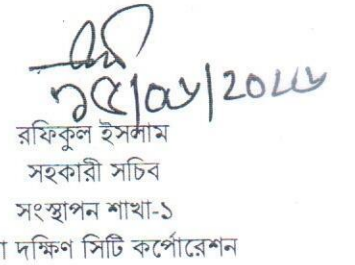 রফিকুল ইসলাম
সহকারী সচিব
সংস্থাপন শাখা-১
দক্ষিণ সিটি কর্পোরেশন